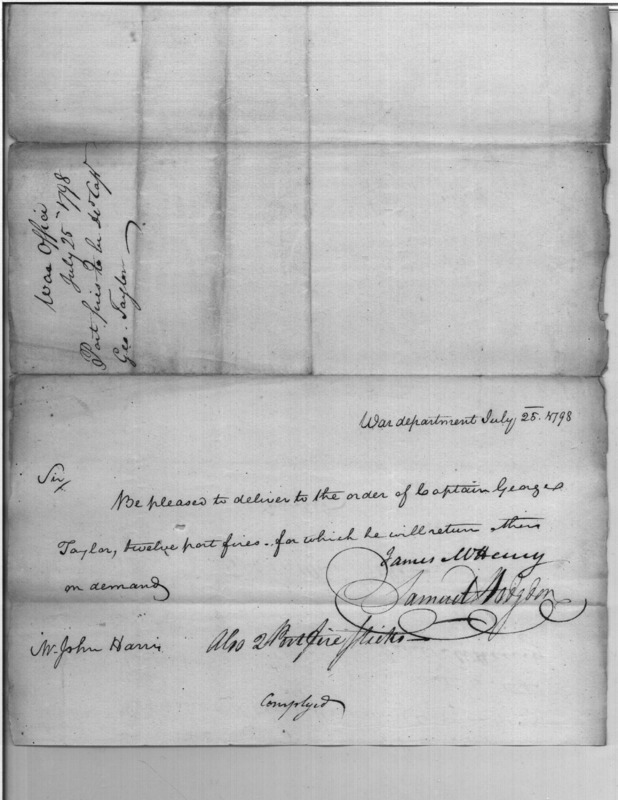 War Office
July 25th 1798
Port fires to be dd Capt
Geo. Taylor
War department July 25. 1798
Sir
Be pleased to deliver to the order of Captain George
Taylor, twelve port fires - for which he will return
on demand
James McHenry
Samuel Hodgdon
Mr. John Harris
Also 2 Portfire Sticks
Complyed